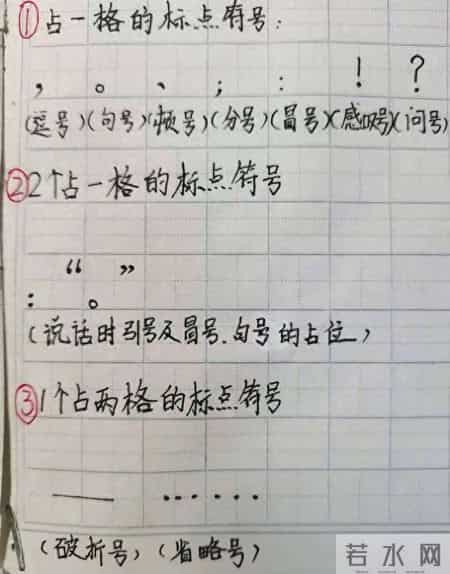 ①占一格的标点符号：
， 。 、 ； ： ！ ？
(逗号)(句号)(顿号)(分号)(冒号)(感叹号)(问号)
②2个占一格的标点符号
“ ”
： 。
(说话时引号及冒号、句号的占位)
③1个占两格的标点符号
—— ……
(破折号) (省略号)
若水网